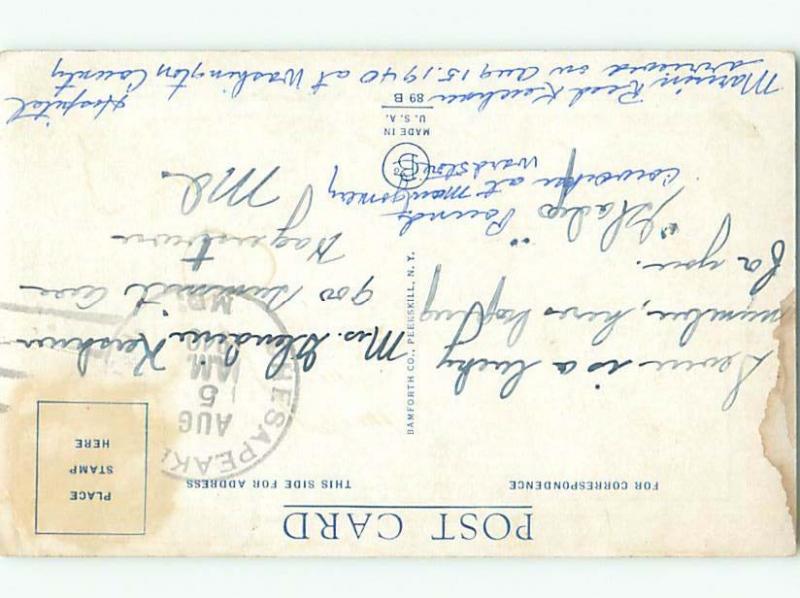 POST CARD
FOR CORRESPONDENCE
THIS SIDE FOR ADDRESS
PLACE
STAMP
HERE
CHESAPEAKE
AUG
5
AM
MD.
Seven is a lucky
number, heres hoping
for you.
"Gladys"
Pounds
coworker at Montgomery
Wardstore
Mrs. Glendine Kershner
900 Summit Ave
Hagerstown
Md.
BAMFORTH CO., PEEKSKILL, N.Y.
MADE IN
U. S. A.
89 B
Marvin Reed Kershner
arrived on Aug 15, 1940 at Washington County
Hospital